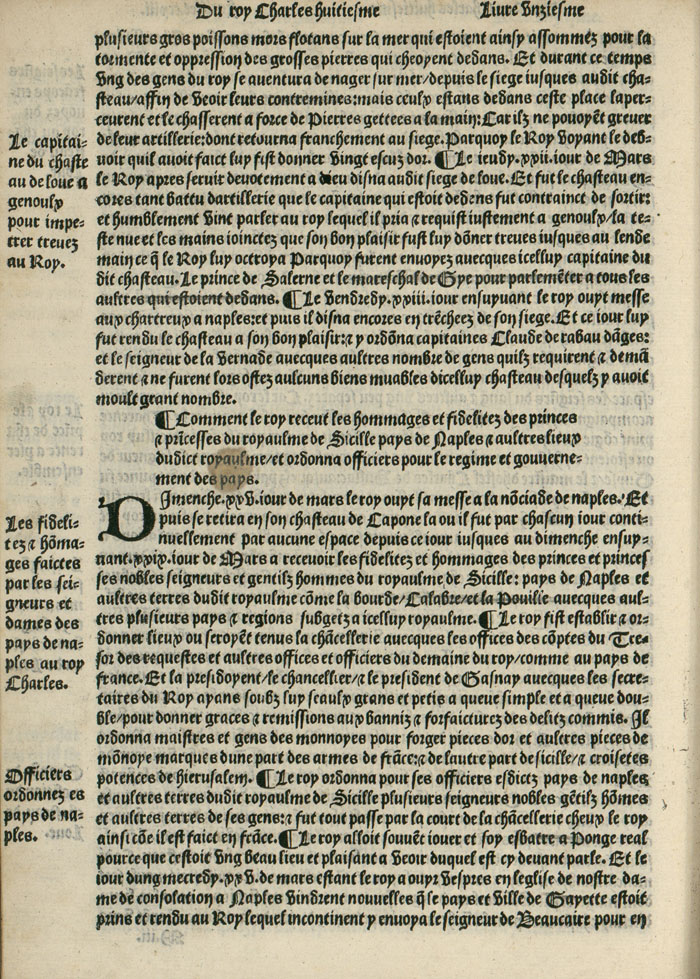 Du roy Charles huitiesme
Liure vnziesme
plusieurs gros poissons mors flotans sur la mer qui estoient ainsy assommez pour la
tormente et oppression des grosses pierres qui cheoyent dedans. Et durant ce temps
vng des gens du roy se auentura de nager sur mer/depuis le siege iusques audit cha-
steau/affin de veoir leurs contremines:mais ceulx estans dedans ceste place laper-
ceurent et le chasserent a force de Pierres gettees a la main: Car ilz ne pouoyēt greuer
de leur artillerie:dont retourna franchement au siege. Parquoy le Roy voyant le deb-
uoir quil auoit faict luy fist donner vingt escuz dor. ¶Le ieudy.xxii.iour de Mars
le Roy apres seruir deuotement a dieu disna audit siege de loue. Et fut le chasteau en-
cores tant battu dartillerie que le capitaine qui estoit dedens fut contrainct de sortir:
et humblement vint parler au roy lequel il pria ⁊ requist iustement a genoulx/la te-
ste nue et les mains ioinctez que son bon plaisir fust luy dōner treues iusques au lende
main ce q̄ le Roy luy octroya Parquoy furent enuoyez auecques icelluy capitaine du
dit chasteau. Le prince de Salerne et le mareschal de Gye pour parlemēter a tous les
aultres qui estoient dedans. ¶Le vendredy.xxiii.iour ensuyuant le roy ouyt messe
aux chartreux a naples:et puis il disna encores en trēcheez de son siege. Et ce iour luy
fut rendu le chasteau a son bon plaisir:⁊ y ordōna capitaines Claude de rabau dāges:
et le seigneur de la Vernade auecques aultres nombre de gens quilz requirent ⁊ demā
derent ⁊ ne furent lors ostez aulcuns biens muables dicelluy chasteau desquelz y auoit
moult grant nombre.
Le capitai-
ne du chaste
au de loue a
genoulx
pour impe-
trer treuez
au Roy.
¶Comment le roy receut les hommages et fidelitez des princes
⁊ prīcesses du royaulme de Sicille pays de Naples ⁊ aultres lieux
dudict royaulme/et ordonna officiers pour le regime et gouuerne-
ment des pays.
DImenche.xxv.iour de mars le roy ouyt sa messe a la nōciade de naples. Et
puis se retira en son chasteau de Capone la ou il fut par chascun iour conti-
nuellement par aucune espace depuis ce iour iusques au dimenche ensuy-
nant.xxix.iour de Mars a receuoir les fidelitez et hommages des princes et princes
ses nobles seigneurs et gentilz hommes du royaulme de Sicille: pays de Naples et
aultres terres dudit royaulme cōme la bourde/Calabre/et la Pouille auecques aul-
tres plusieurs pays ⁊ regions subgetz a icelluy royaulme. ¶Le roy fist establir ⁊ or-
donner lieux ou seroyēt tenus la chācellerie auecques les offices des cōptes du Tre-
sor des requestes et aultres offices et officiers du demaine du roy/comme au pays de
france. Et la presidoyent/le chancellier/⁊ le president de Gasnay auecques les secre-
taires du Roy ayans soubz luy seaulx grans et petis a queue simple et a queue dou-
ble/pour donner graces ⁊ remissions aux banniz ⁊ forfaicturez des delitz commis. Il
ordonna maistres et gens des monnoyes pour forger pieces dor et aultres pieces de
mōnoye marques dune part des armes de frāce:⁊ de lautre part de sicille/⁊ croisetes
potences de hierusalem. ¶Le roy ordonna pour ses officiers esdictz pays de naples
et aultres terres dudit royaulme de Sicille plusieurs seigneurs nobles gētilz hōmes
et aultres de ses gens:⁊ fut tout passe par la court de la chācellerie cheux le roy
ainsi cōe il est faict en frāce. ¶Le roy alloit souuēt iouer et soy esbatre a Ponge real
pource que cestoit vng beau lieu et plaisant a veoir duquel est cy deuant parle. Et le
iour dung mecredy.xxv.de mars estant le roy a ouyr vespres en leglise de nostre da-
me de consolation a Naples vindrent nouuelles q̄ le pays et ville de Gayette estoit
prins et rendu au Roy lequel incontinent y enuoya le seigneur de Beaucaire pour en
Les fideli-
tez ⁊ hōma-
ges faictes
par les sei-
gneurs et
dames des
pays de na-
ples au roy
Charles.
Officiers
ordonnez es
pays de na-
ples.